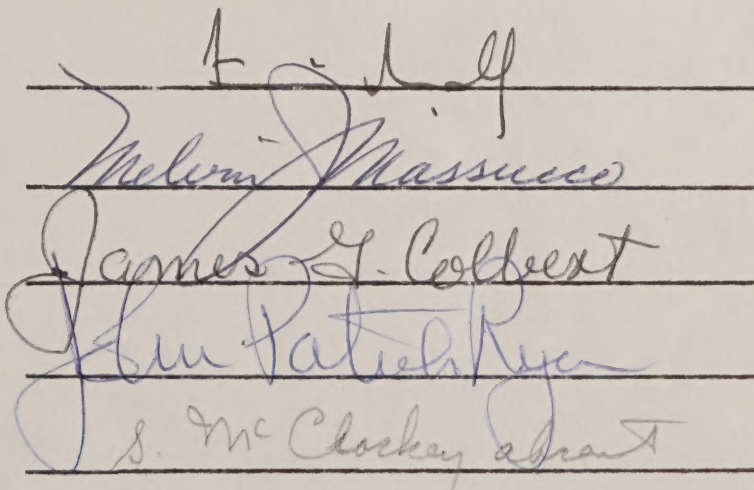 Melvin J. Massucco
James G. Colbert
John Patrick Ryan
s. Mc Closkey absent